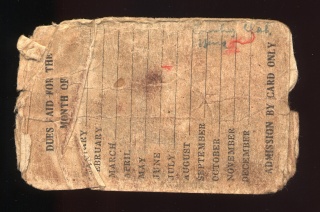 DUES PAID FOR THE
MONTH OF
FEBRUARY
MARCH
APRIL
MAY
JUNE
JULY
AUGUST
SEPTEMBER
OCTOBER
NOVEMBER
DECEMBER
ADMISSION BY CARD ONLY